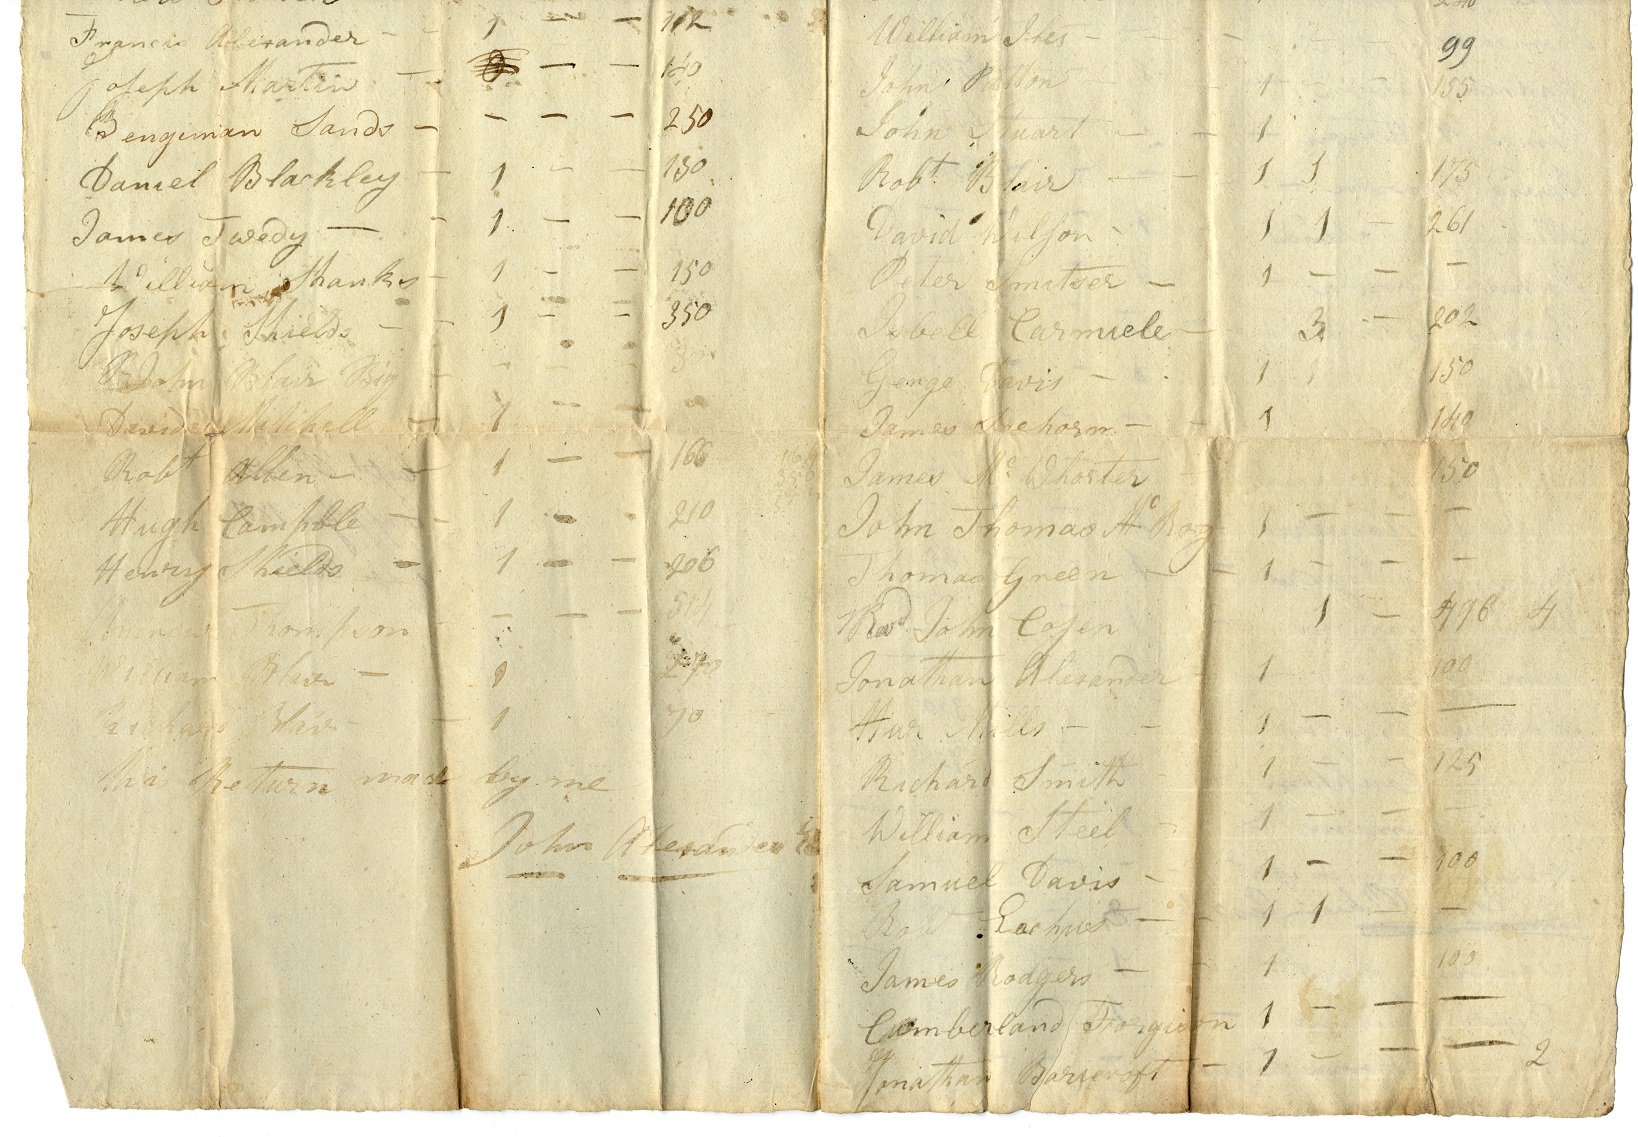 Francis Alexander - - 1 - - 112
Joseph Martin - - - 140
Bengiman Sands - - - - 250
Daniel Blackley - 1 - - 130
James Twedy - - 1 - - 100
William Shanks - 1 - - 150
Joseph Shields - - 1 - - 350
John Blair Big - - - -
David Mitchell - 1 - -
Robt Allen - - 1 - - 166
Hugh Campble - - 1 - - 210
Henry Shields - 1 - - 206
Thompson - - - - 514
William Blair - 1
Blair - - 1 70
this Return made by me
John Alexander
William Iles - - - - - 99
John - - 1 155
John Stuart - - 1
Robt Blair - - 1 1 175
David Wilson - 1 1 - 261
Peter Smitser - 1 - - -
Isbell Carmicle - 3 - 202
Gerge Davis - 1 1 150
James Sechorn - - 1 140
James Mc Whorter - 150
John Thomas Mc Roy 1 - - -
Thomas Green - - 1 - - -
Revd John Cosen - 1 - 498 4
Jonathan Alexander - 1 100
Hur Mills - - 1 - - -
Richard Smith - 1 - - 125
William Steil - 1 - - -
Samuel Davis - 1 - - 100
Robt - - 1 1 - -
James Rodgers - - 1 100
Cumberland Forgison 1 - - -
Jonathan Barrcroft - 1 - - - 2